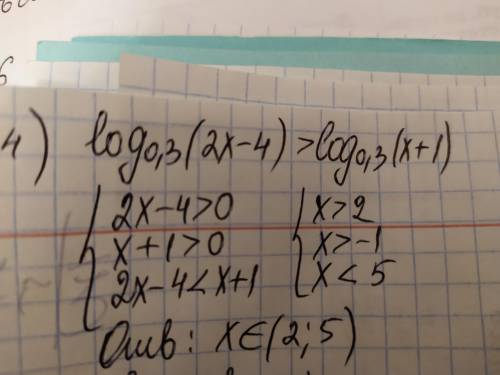 4) log₀,₃(2x-4)>log₀,₃(x+1)
{ 2x-4>0 { x>2
x+1>0 x>-1
2x-4<x+1 x<5
Отв: x∈(2;5)